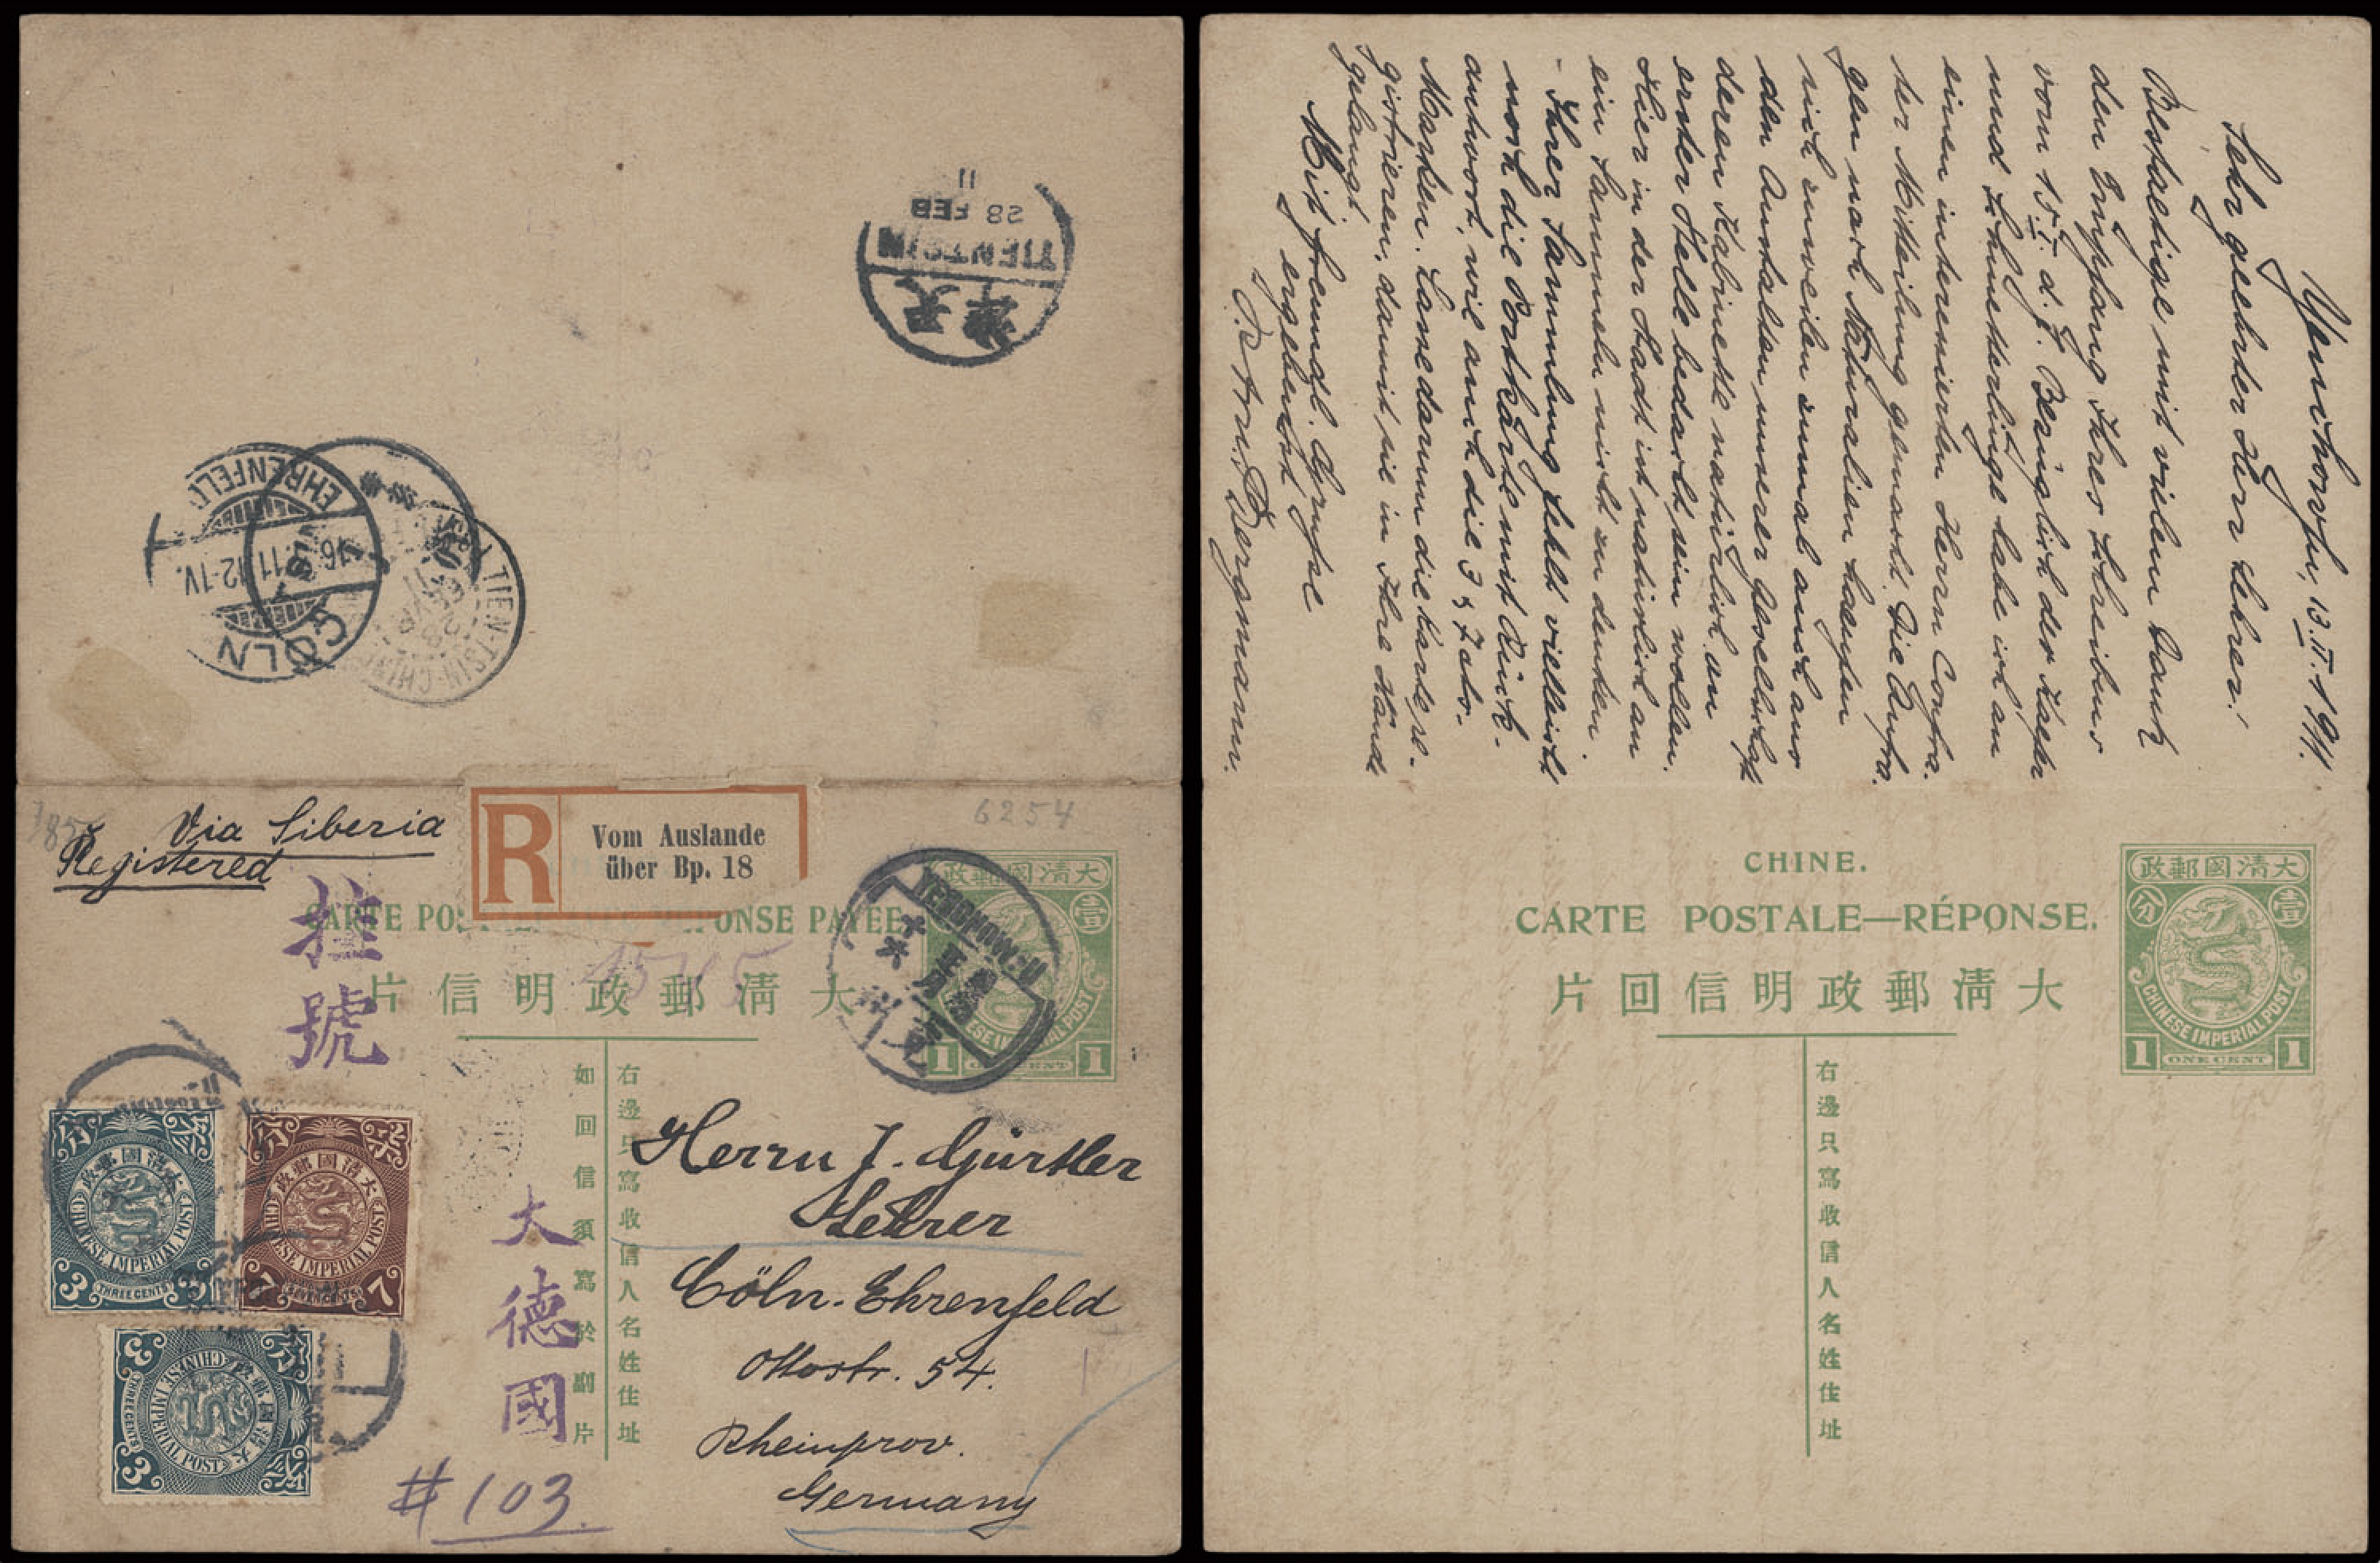 TIENTSIN
28 FEB
11
天津
CÖLN
EHRENFELD
16
11 12-1V.
TIEN-TSIN-CHINE
Via Siberia
Registered
R
Vom Auslande
über Bp. 18
6254
CARTE POS
ONSE PAYÉE
大清郵政明信片
掛號
YENCHOWFU
大清國郵政
壹分
CHINESE IMPERIAL POST
1 ONE CENT 1
右邊只寫收信人名姓住址
如回信須寫於副片
大清國郵政
CHINESE IMPERIAL POST
3 THREE CENTS 3
大清國郵政
CHINESE IMPERIAL POST
7 SEVEN CENTS 7
大清國郵政
CHINESE IMPERIAL POST
3 THREE CENTS 3
大德國
Herrn J. Gürtler
Lehrer
Cöln-Ehrenfeld
Ottostr. 54.
Rheinprov.
Germany
#103
Yenchowfu, 13.II.1911.
Sehr geehrter Herr Lehrer!
Bestaetige mit vielem Dank
den Empfang Ihres Schreibens
vom 15. I. d. J. Bezüglich der Kaefer
und Schmetterlinge habe ich an
einen interessierten Herrn Confra-
ter Mitteilung gemacht. Die Anfra-
gen nach Naturalien haeufen
sich zuweilen zumal auch aus
den Anstalten unserer Gesellschaft
deren Kabinette natürlich an
erster Stelle bedacht sein wollen.
Hier in der Stadt ist natürlich an
ein Sammeln nicht zu denken.
- Ihrer Sammlung fehlt vielleicht
noch die Postkarte mit Rück-
antwort, wie auch die 3 & 7 Cts.-
Marken. Lasse darum die Karte re-
gistrieren, damit sie in Ihre Hände
gelangt.
Mit freundl. Gruße
ergebenst
P. Bergmann.
CHINE.
CARTE POSTALE—RÉPONSE.
大清郵政明信回片
大清國郵政
壹分
CHINESE IMPERIAL POST
1 ONE CENT 1
右邊只寫收信人名姓住址